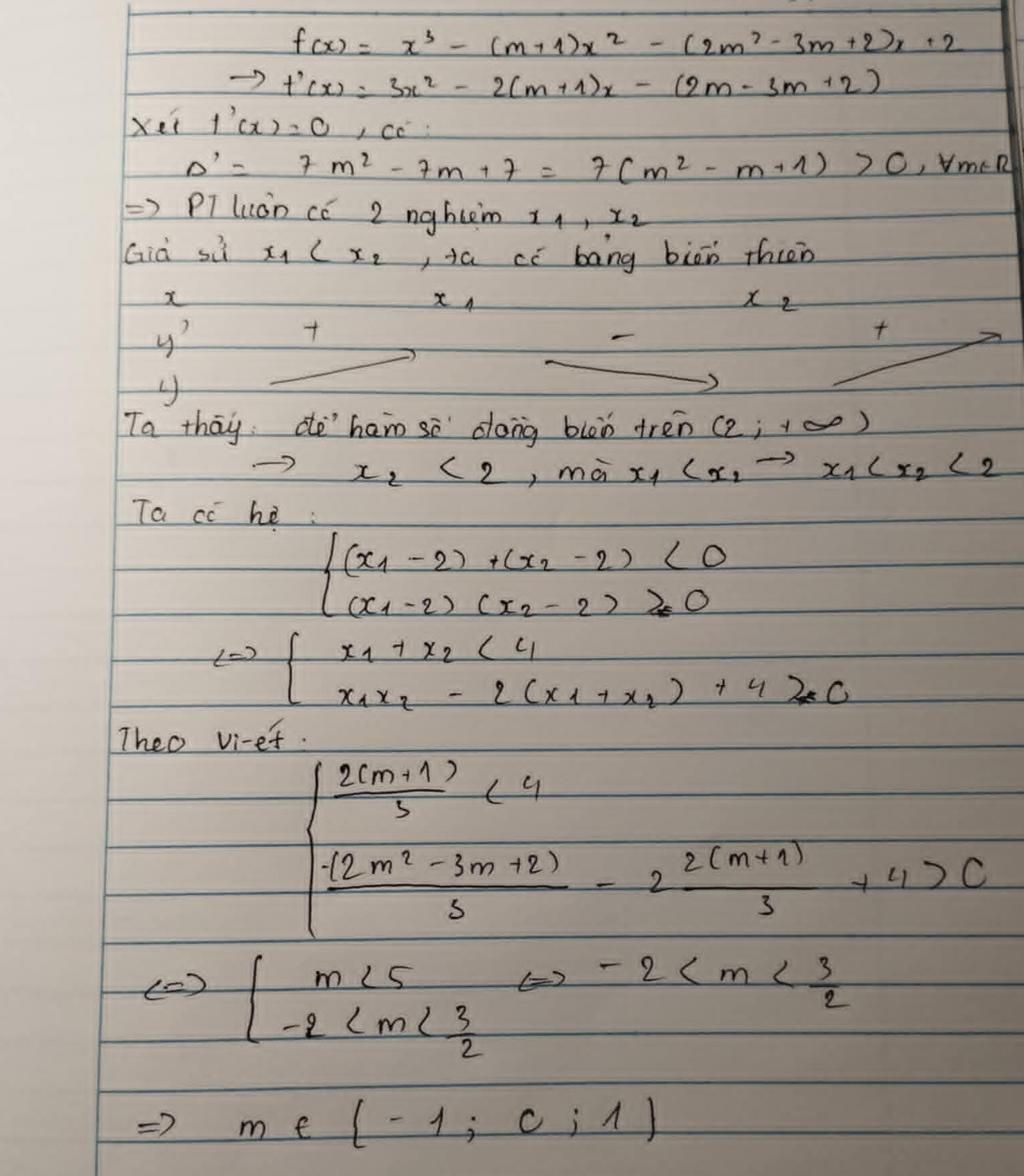 f(x) = x³ - (m+1)x² - (2m² - 3m +2)x +2
→ f'(x) = 3x² - 2(m+1)x - (2m - 3m +2)
Xét f'(x) = 0, có:
Δ' = 7m² - 7m + 7 = 7(m² - m +1) > 0, ∀m∈R
=> PT luôn có 2 nghiệm x₁, x₂
Giả sử x₁ < x₂, ta có bảng biến thiên
x x₁ x₂
y' + - +
y
Ta thấy: để hàm số đồng biến trên (2; +∞)
→ x₂ < 2, mà x₁ < x₂ → x₁ < x₂ < 2
Ta có hệ:
{ (x₁ - 2) + (x₂ - 2) < 0
(x₁ - 2) (x₂ - 2) ≥ 0
<=> { x₁ + x₂ < 4
x₁x₂ - 2(x₁ + x₂) + 4 ≥ 0
Theo Vi-ét.
{ 2(m+1)/3 < 4
-(2m² - 3m +2)/3 - 2 2(m+1)/3 + 4 > 0
<=> { m < 5 <=> -2 < m < 3/2
-2 < m < 3/2
=> m ∈ { -1; 0; 1 }